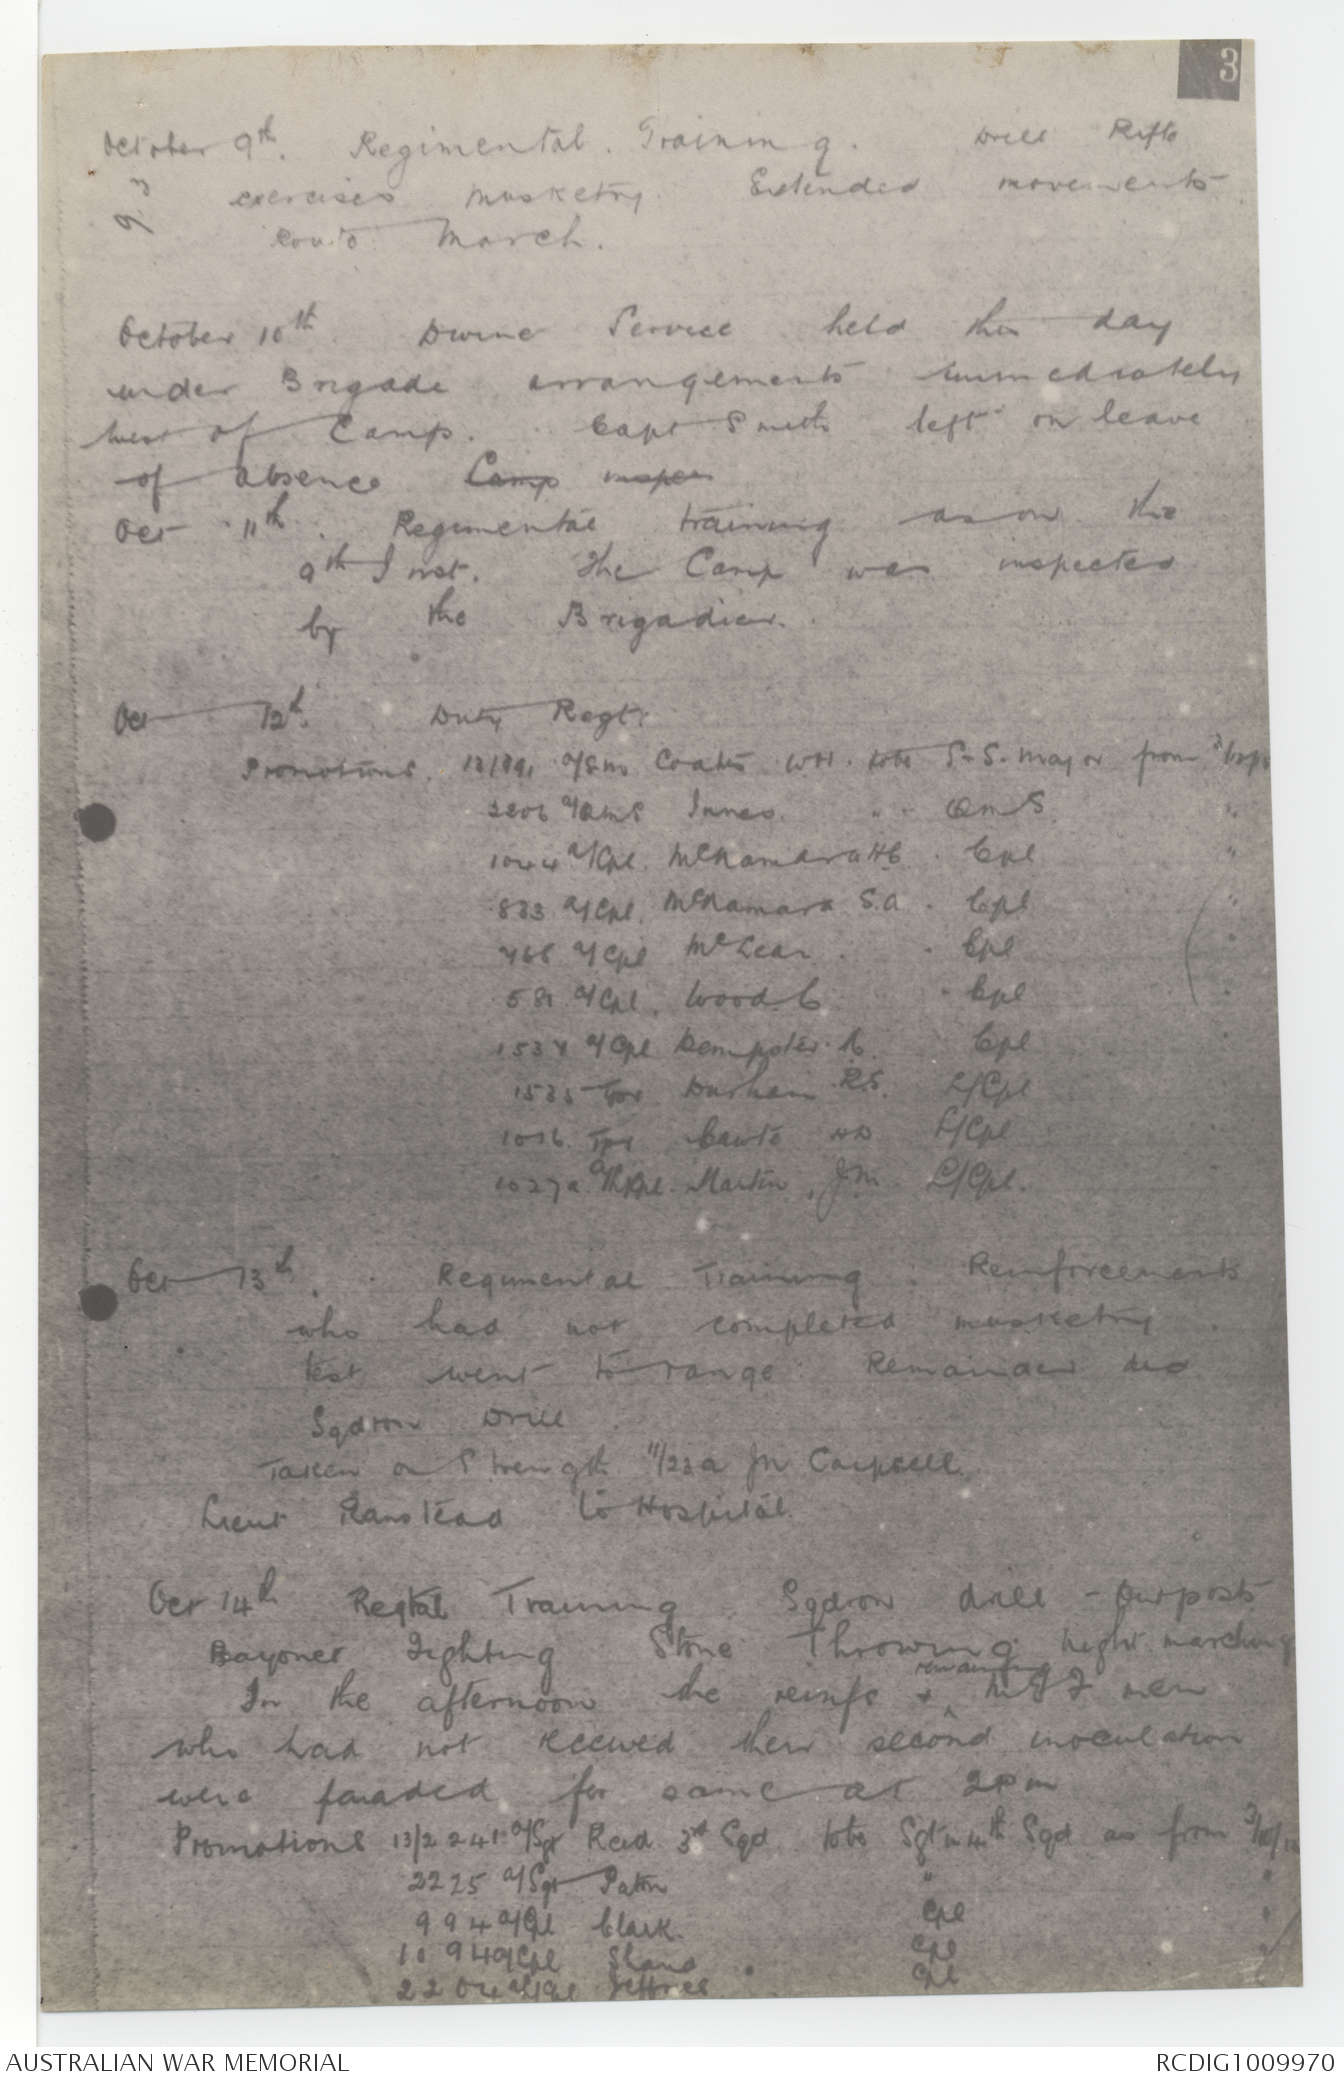 3
October 9th. Regimental. Training. Drill Rifle
exercises musketry. Extended movements
March.
October 10th Divine Service held this day
under Brigade arrangements immediately
West of Camp. Capt Smith left on leave
of absence Camp inspec
Oct 11th. Regimental training as on the
9th Inst. The Camp was inspected
by the Brigadier.
Oct 12th. Duty Regt.
Promotions. 13/391 a/Sm Coates WH. to be S.S. Major from
2206 a/QMS Innes. " - QMS "
1044 a/Cpl. McNamara HC. Cpl "
833 a/Cpl. McNamara S.A. Cpl "
768 a/Cpl McLean. Cpl "
581 a/Cpl. Wood. C Cpl
a/Cpl Dempster. Cpl
1535 Tpr Durham R.S. L/Cpl
1016 Tpr L/Cpl
1027a Martin J.M. L/Cpl.
Oct 13th. Regimental Training. Reinforcements
who had not completed musketry
test went to range. Remainder did
Sqdron Drill.
Taken on Strength 11/23a JM
Lieut Ranstead to Hospital
Oct 14th Regtal Training Sqdron drill - Outposts
Bayonet Fighting Stone Throwing night marching
In the afternoon the reinfs & remaining men
who had not received their second inoculation
were paraded for same at 2pm
Promotions 13/2241 a/Sgt Reid 3rd Sqd to be Sgt in 4th Sqd as from
2225 a/Sgt Paton " "
994 a/Cpl Clark. Cpl "
1094 a/Cpl Shand Cpl "
2204 a/Cpl Jeffries Cpl
AUSTRALIAN WAR MEMORIAL
RCDIG1009970